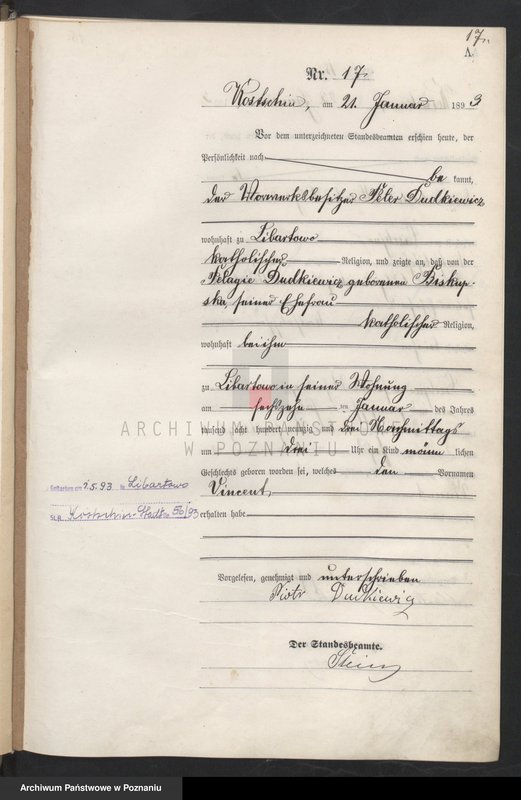 17.
A.
Nr. 17.
Kostschin, am 21. Januar 1893
Vor dem unterzeichneten Standesbeamten erschien heute, der
Persönlichkeit nach
be kannt,
der Vorwerksbesitzer Peter Dudkiewicz
wohnhaft zu Libartowo
katholischer Religion, und zeigte an, daß von der
Pelagie Dudkiewicz geborenen Biskup-
ska, seiner Ehefrau
katholischer Religion,
wohnhaft bei ihm
zu Libartowo in seiner Wohnung
am sechszehn ten Januar des Jahres
tausend acht hundert neunzig und drei Nachmittags
um drei Uhr ein Kind männ lichen
Geschlechts geboren worden sei, welches den Vornamen
Vincent
erhalten habe
Gestorben am 7.5.93 in Libartowo
St. A. Kostschin Stadt 56/93
Vorgelesen, genehmigt und unterschrieben
Piotr Dudkiewicz
Der Standesbeamte.
ARCHIWUM PAŃSTWOWE
W POZNANIU
Archiwum Państwowe w Poznaniu